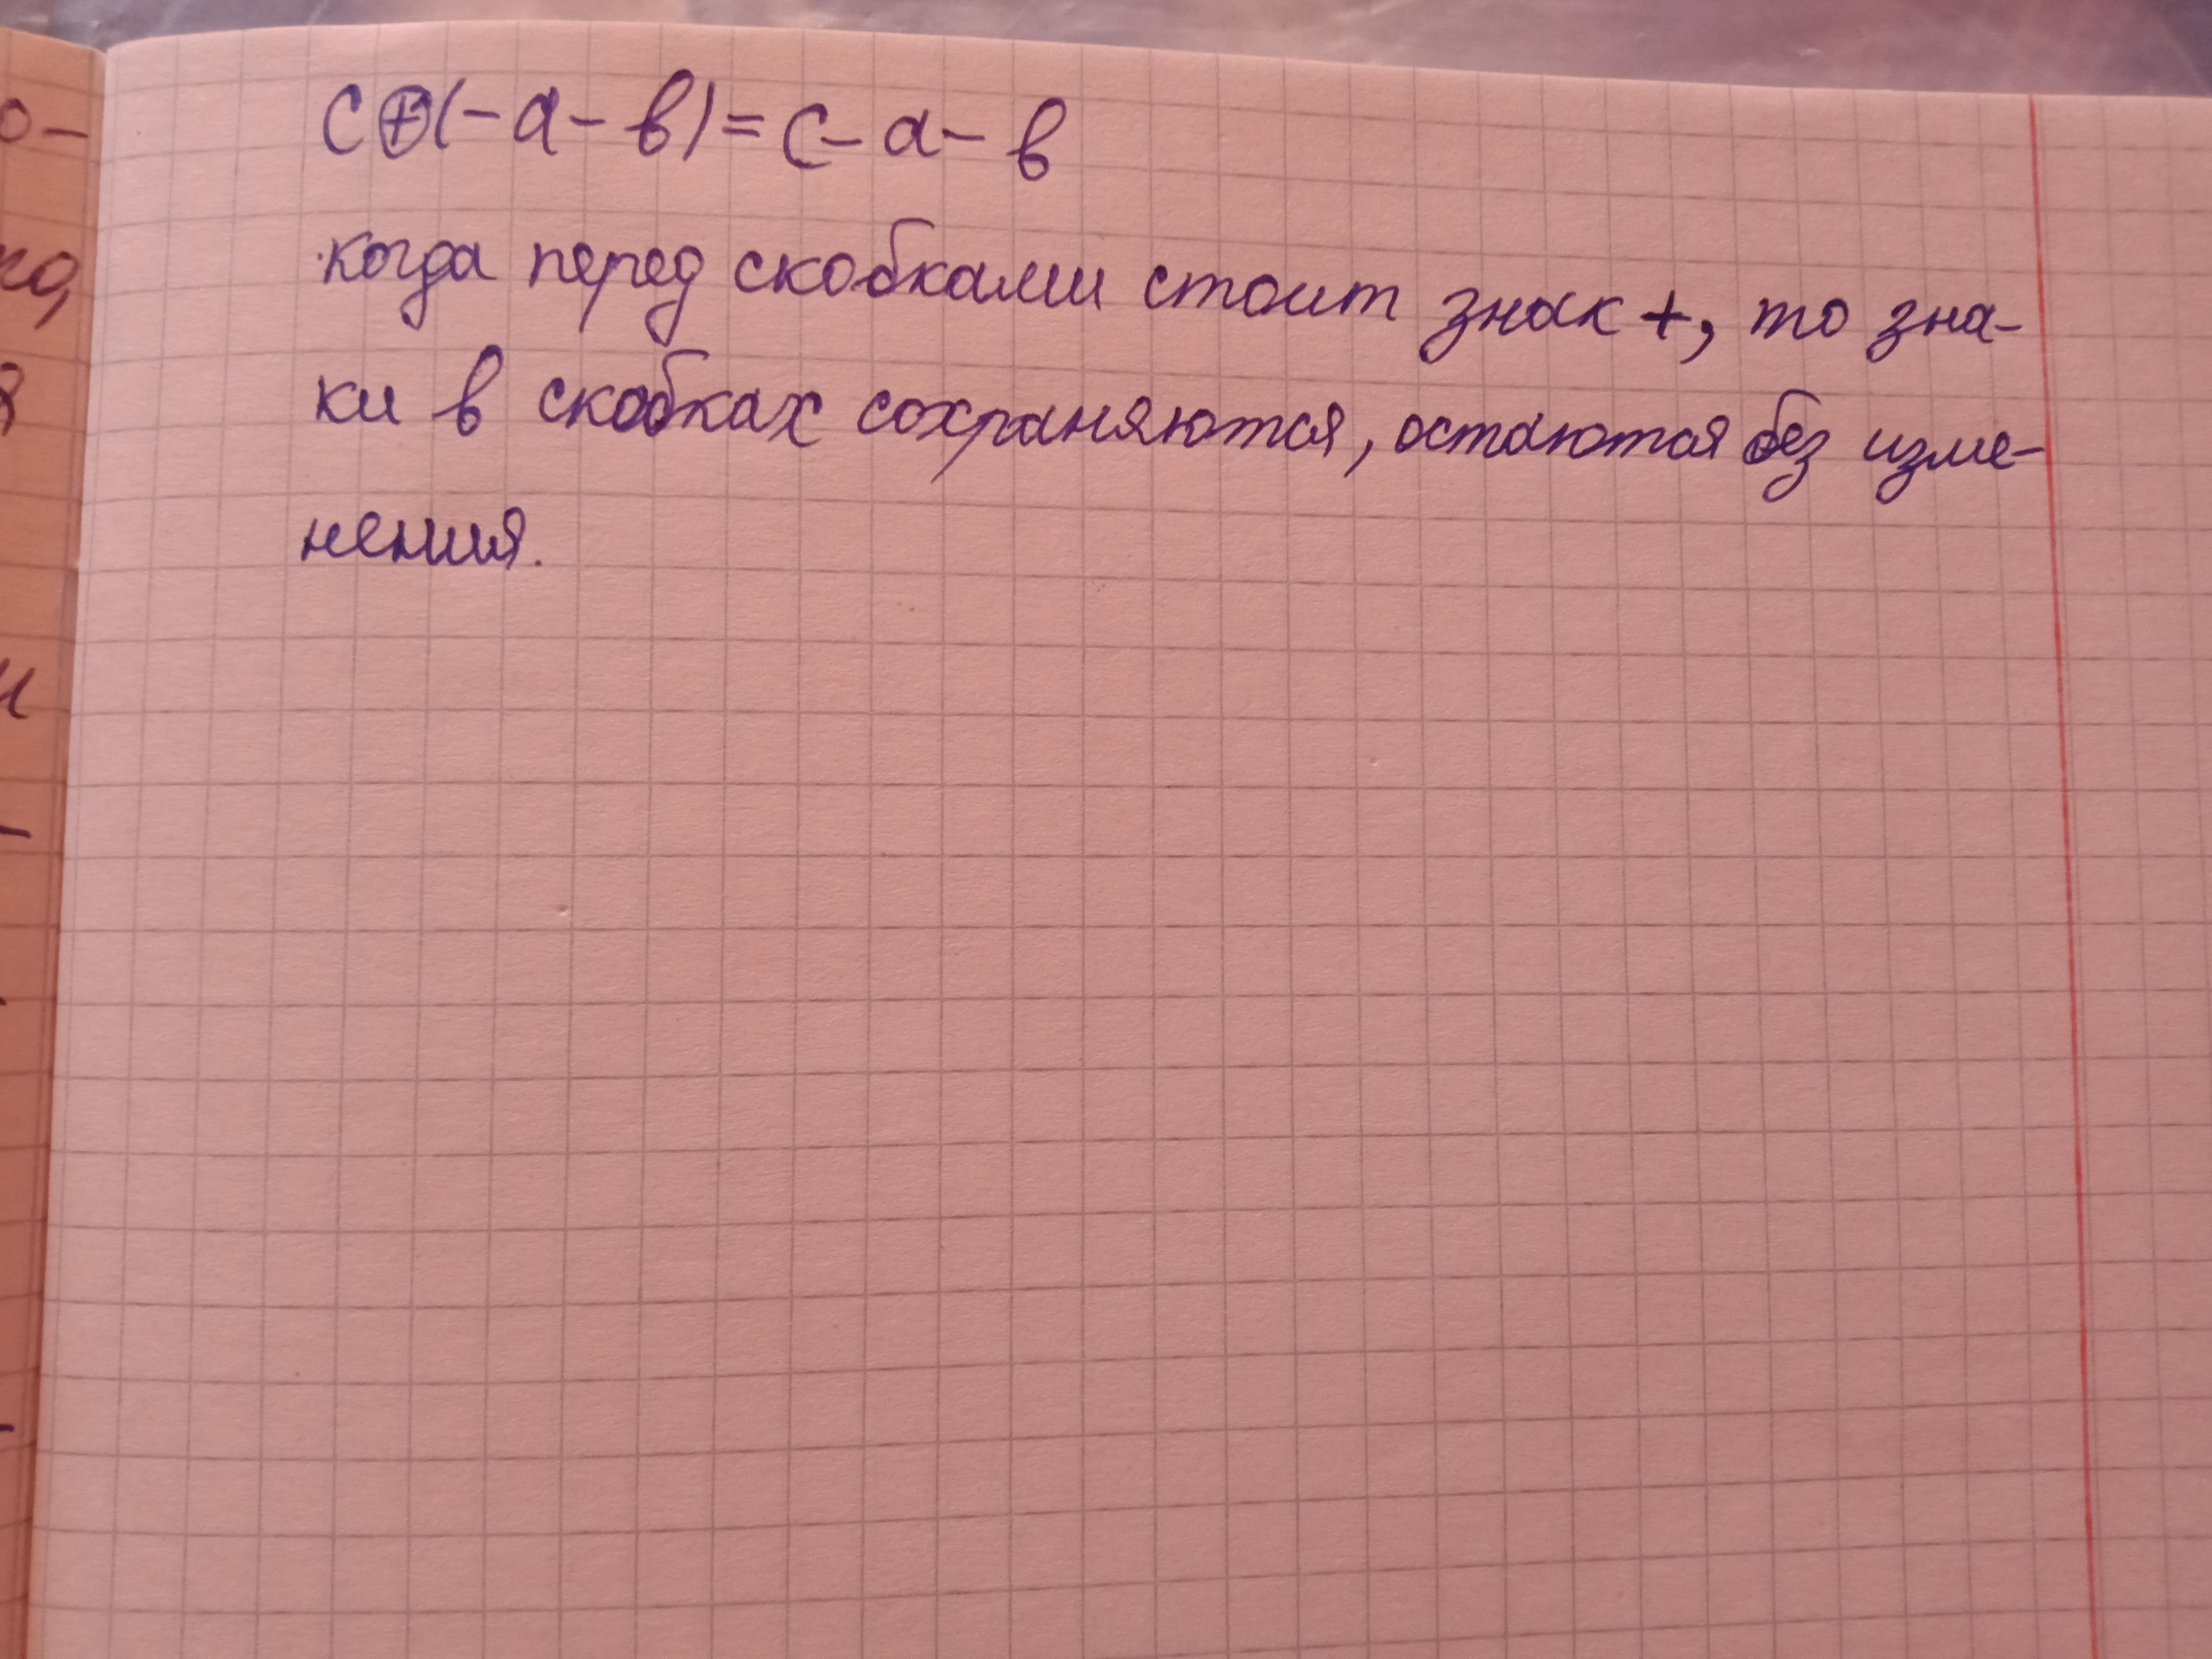 c+(-a-в)=c-a-в
когда перед скобками стоит знак +, то зна-
ки в скобках сохраняются, остаются без изме-
нения.